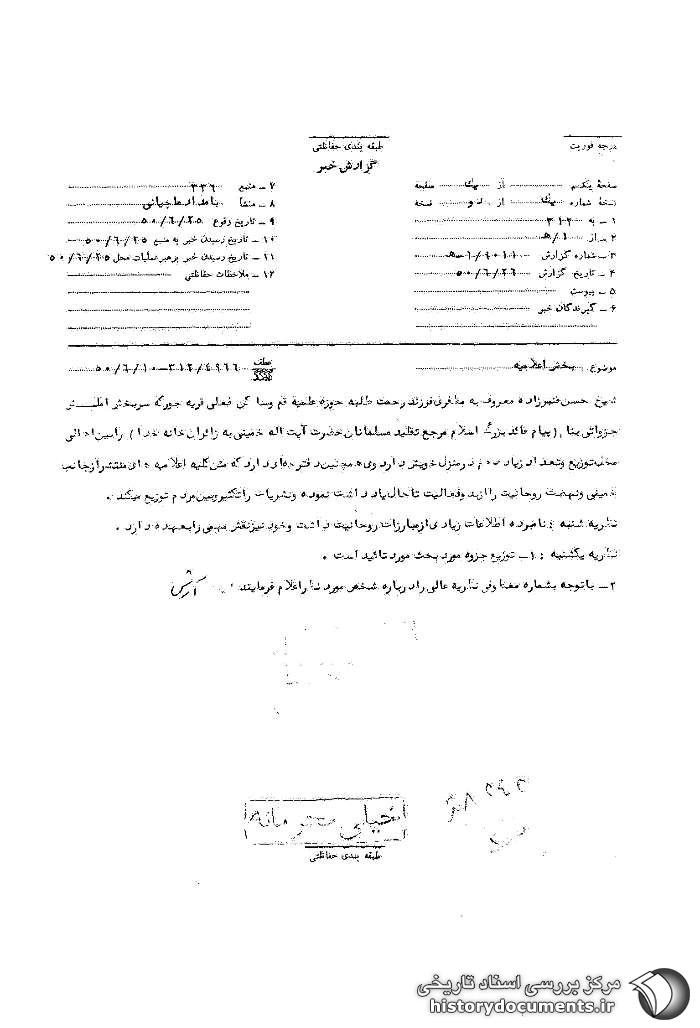 درجه فوریت
طبقه بندی حفاظتی
گزارش خبر
صفحهٔ یکم از یک صفحه
نسخهٔ شماره یک از دو نسخه
۱ - به ۳۱۲
۲ - از ۱ / هـ
۳ - شماره گزارش
۴ - تاریخ گزارش ۵۰/۶/۲۶
۵ - پیوست
۶ - گیرندگان خبر
۷ - منبع ۳۳۶
۸ - منشأ
۹ - تاریخ وقوع ۵۰/۶/۲۵
۱۰ - تاریخ رسیدن خبر به منبع ۵۰/۶/۲۵
۱۱ - تاریخ رسیدن خبر برهبر عملیات محل ۵۰/۶/۲۵
۱۲ - ملاحظات حفاظتی
موضوع پخش اعلامیه
عطف ۳۱۲/۴۹۶۶ - ۵۰/۶/۱۰
شیخ حسن معروف به مظفری فرزند رحمت طلبه حوزه علمیه قم وساکن فعلی قریه جورکه سر بخش
جزواتی بنام (پیام قائد بزرگ اسلام مرجع تقلید مسلمانان حضرت آیت اله خمینی به زائران خانه خدا) را بین اهالی
محل توزیع وتعداد زیادی هم در منزل خویش دارد وی همچنین دفترچه‌ای دارد که متن کلیه اعلامیه های منتشر از جانب
خمینی ونهضت روحانیت را از بدو فعالیت تا حال یادداشت نموده ونشریات را تکثیر وبین مردم توزیع میکند.
نظریه شنبه : نامبرده اطلاعات زیادی از مبارزات روحانیت داشته وخود نیز نقش مهمی را بعهده دارد.
نظریه یکشنبه : ۱ - توزیع جزوه مورد بحث مورد تائید است.
۲ - با توجه بشماره معطوفی نظریه عالی را درباره شخص مورد نظر اعلام فرمایند.
خیلی محرمانه
طبقه بندی حفاظتی
مرکز بررسی اسناد تاریخی
historydocuments.ir